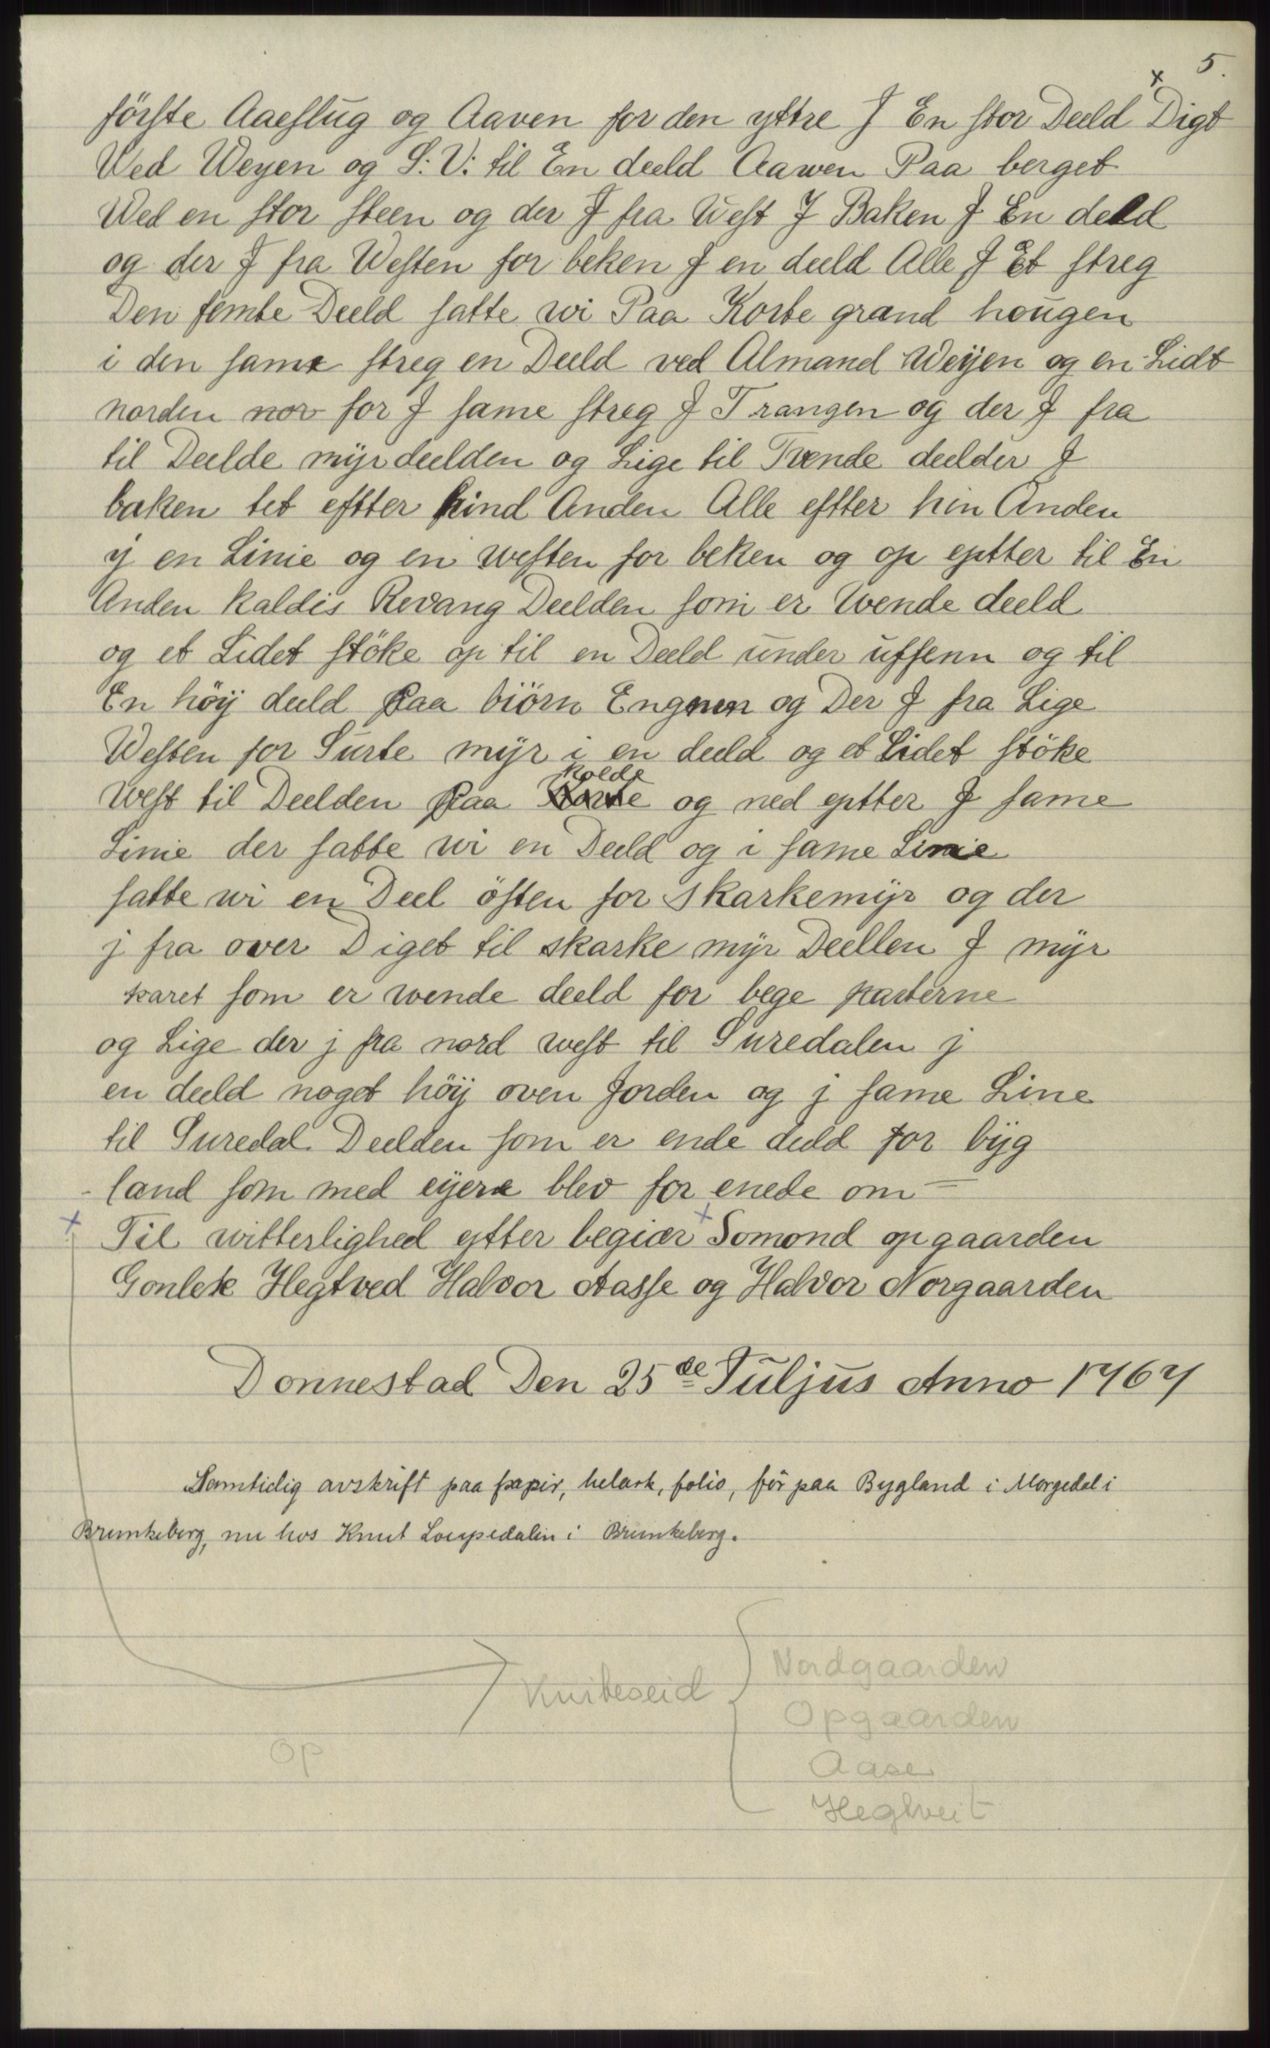 5.
förste Aaeslug og Aaven for den yttre J En stor Deeld x Digt
Ved Weyen og S: V: til En deeld Aawen Paa berget
Ved en stor steen og der J fra West J Baken J En deeld
og der J fra Westen for beken J en deeld Alle J Et streg
Den femte Deeld satte wi Paa Korte grand hougen
i den same streg en Deeld ved Almand Weyen og en Lidt
norden nov for J same streg J Trangen og der J fra
til Deelde myr deelden og Lige til Tvende deelder J
baken tet effter hind Anden Alle effter hin Anden
ij en Linie og en westen for beken og op eptter til En
Anden kaldis Revang Deelden som er Wende deeld
og et Lidet stöke op til en Deeld under uffenn og til
En höij deeld Paa biörn Engnen og Der J fra Lige
Westen for Surte mijr i en deeld og et Lidet stöke
kolde
West til Deelden Paa og ned eptter J same
Linie der satte wi en Deeld og i same Linie
satte wi en Deel östen for skarkemijr og der
j fra over Diget til skarke mijr Deellen J mijr
karet som er wende deeld for bege parterne
og Lige der j fra nord west til Suredalen j
en deeld noget höij oven Jorden og j same Line
til Suredal Deelden som er ende deeld for bijg
land som med eyere blev for enede om =
x Til witterlighed eftter begiær x Somond opgaarden
Gonlek Hegtved Halvor Aasse og Halvor Norgaarden
Donnestad Den 25de Tuljus Anno 1767
Samtidig avskrift paa papir, helark, folio, för paa Bygland i Morgedal i
Brunkeberg, nu hos Knut Loupedalen i Brunkeberg.
Kviteseid
Nordgaarden
Opgaarden
Aase
Hegtveit
Op